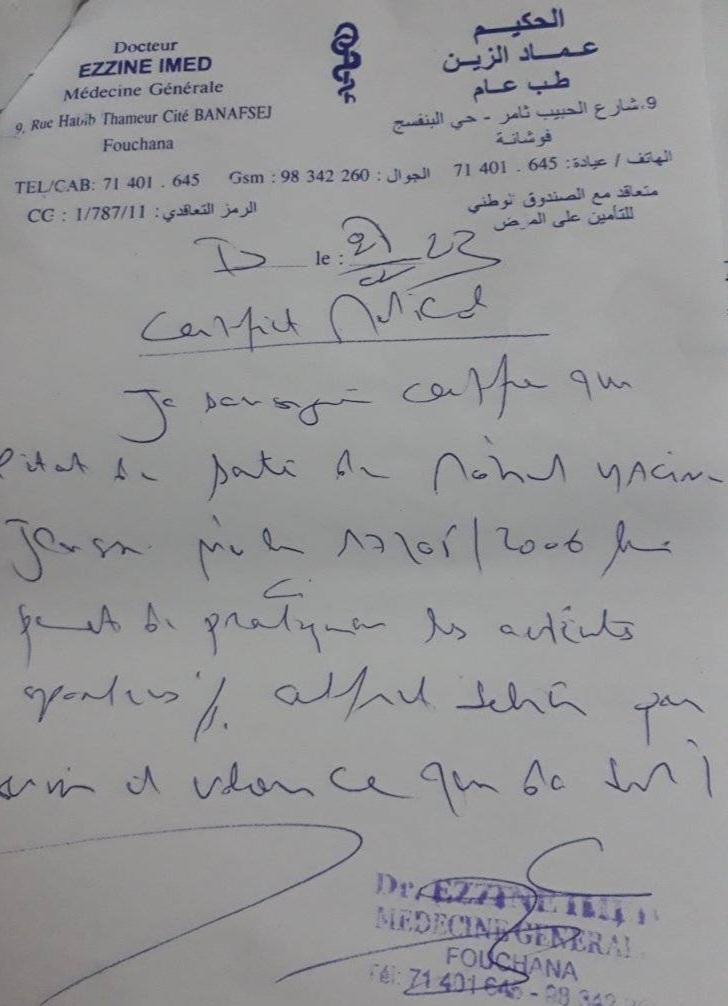 Docteur
EZZINE IMED
Médecine Générale
9, Rue Habib Thameur Cité BANAFSEJ
Fouchana
الحكيم
عماد الزين
طب عام
9.شارع الحبيب ثامر - حي البنفسج
فوشانة
TEL/CAB: 71 401 . 645 Gsm : 98 342 260 : الجوال 71 401 . 645 :الهاتف / عيادة
CC : 1/787/11 :الرمز التعاقدي
متعاقد مع الصندوق لوطني
للتأمين على المرض
le :
Certificat Médical
Je soussigné certifie que
l'état de santé de Mohamed YACine
né le 17/05/2006 lui
permet de pratiquer les activités
sportives
et valoir ce que de droit
Dr. EZZINE IMED
MEDECINE GENERAL
FOUCHANA
Tél: 71 401 645 - 98 342